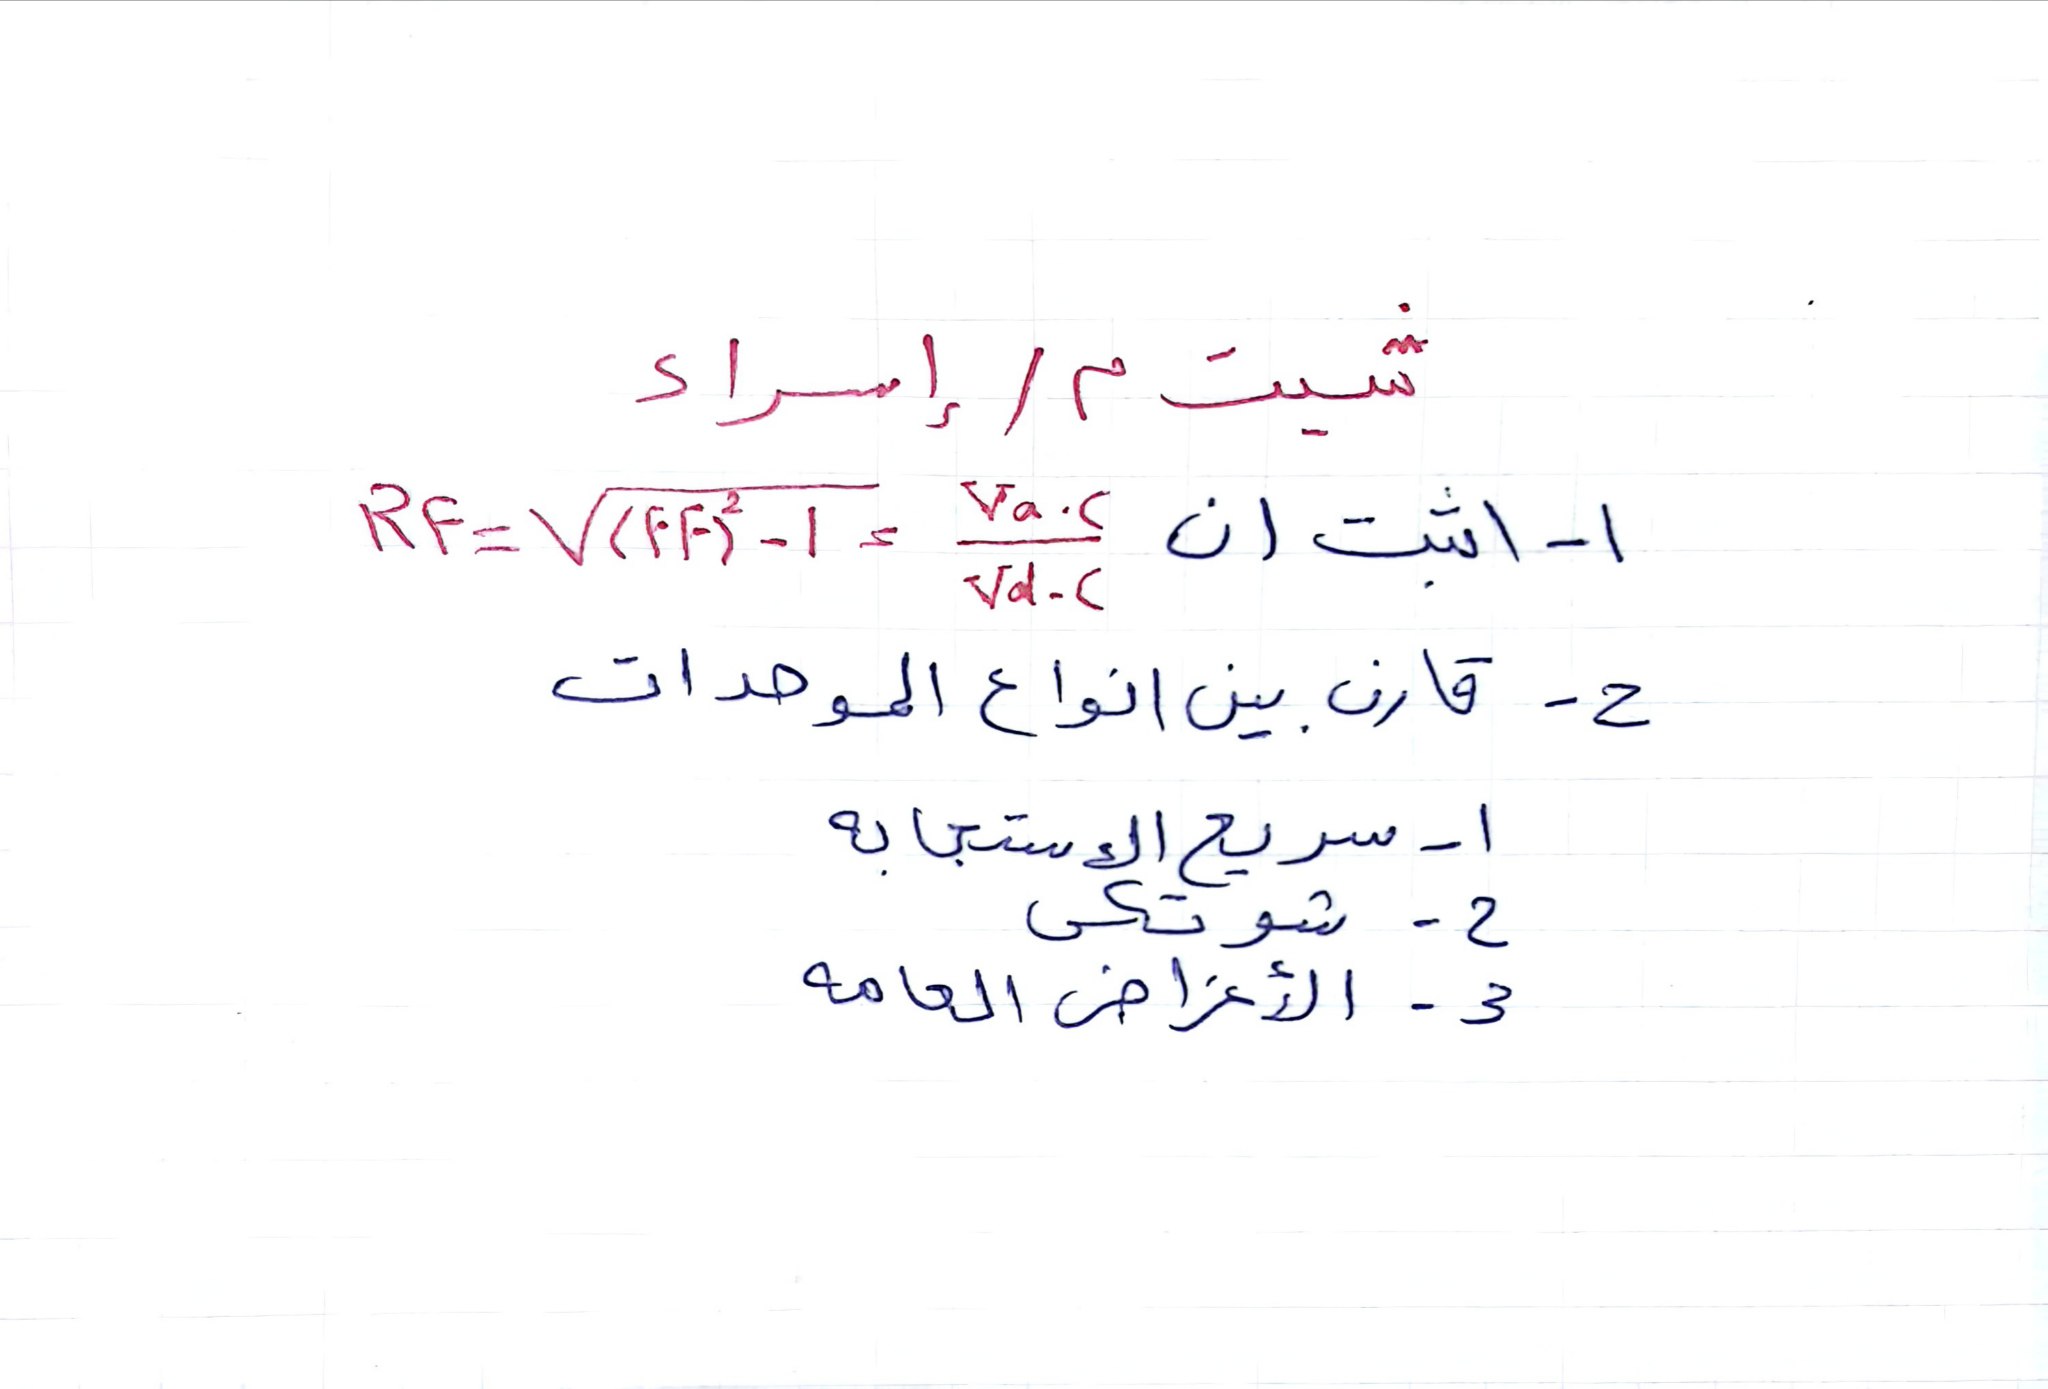 شيت م/ إسراء
1- اثبت ان RF = √(FF)² - 1 = Va.c / Vd.c
2- قارن بين انواع الموحدات
1- سريع الاستجابه
2- شوتكى
3- الأغراض العامه